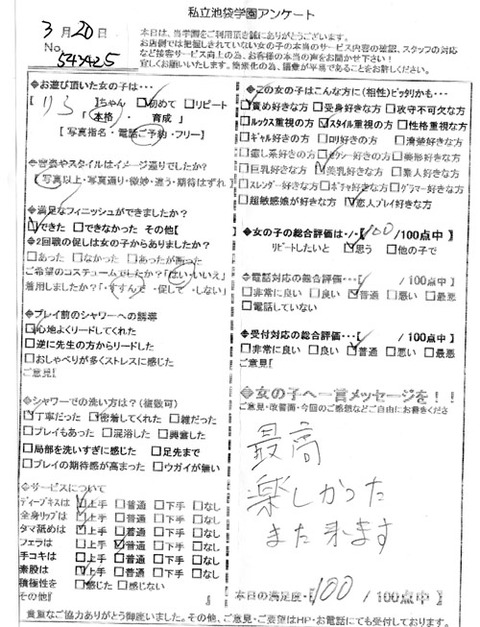 私立池袋学園アンケート
3月20日
No.
本日は、当学園をご利用頂き誠にありがとうございます。
お店側では把握しきれていない女の子の本当のサービス内容の確認、スタッフの対応
など接客サービス向上の為、お客様の本当の声をお聞かせ下さい!
宜しくお願いします。簡素化の為、議書が平易であることをお許しください。
◆お遊び頂いた女の子は…
【りら】ちゃん □初めて □リピート
「本格・育成」
【写真指名・電話ご予約・フリー】
◆容姿やスタイルはイメージ通りでしたか?
【写真以上・写真通り・微妙・違う・期待はずれ】
◆満足なフィニッシュができましたか?
□できた □できなかった その他【 】
◆2回戦の促しは女の子からありましたか?
□あった □なかった □あったが断った
ご希望のコスチュームでしたか?「はい・いいえ」
着用しましたか?・すすんで・促して・しない」
◆プレイ前のシャワーへの誘導
□心地よくリードしてくれた
□逆に先生の方からリードした
□おしゃべりが多くストレスに感じた
ご意見【
◆シャワーでの洗い方は?(複数可)
□丁寧だった □密着してくれた □雑だった
□プレイもあった □混浴した □興奮した
□局部を洗いすぎに感じた □足先まで
□プレイの期待感が高まった □ウガイが無い
◆サービスについて
ディープキスは □上手 □普通 □下手 □なし
全身リップは □上手 □普通 □下手 □なし
タマ舐めは □上手 □普通 □下手 □なし
フェラは □上手 □普通 □下手 □なし
手コキは □上手 □普通 □下手 □なし
素股は □上手 □普通 □下手 □なし
積極性を □感じた □感じない
その他『 』
◆この女の子はこんな方に(相性)ピッタリかも…
□責め好きな方 □受身好きな方 □攻守不可欠な方
□ルックス重視の方 □スタイル重視の方 □性格重視な方
□ギャル好きの方 □ロリ好きの方 □清楚好きな方
□癒し系好きの方 □セクシー好きな方 □美形好きな方
□巨乳好きな方 □美乳好きな方 □素人好きな方
□スレンダー好きな方 □ポチャ好きな方 □グラマー好きな方
□超敏感娘が好きな方 □恋人プレイ好きな方
◆女の子の総合評価…【100/100点中】
リピートしたいと □思う □他の子で
◆電話対応の総合評価…【 /100点中】
□非常に良い □良い □普通 □悪い □最悪
□電話していない
◆受付対応の総合評価…【 /100点中】
□非常に良い □良い □普通 □悪い □最悪
ご意見【
◆女の子へ一言メッセージを!!
ご意見・改善面・今回のご感想などご自由にお書きくださ
最高
楽しかった
また来ます
本日の満足度・【100/100点中】
貴重なご協力ありがとう御座いました。その他、ご意見・ご要望はHP・お電話にても受付しております。